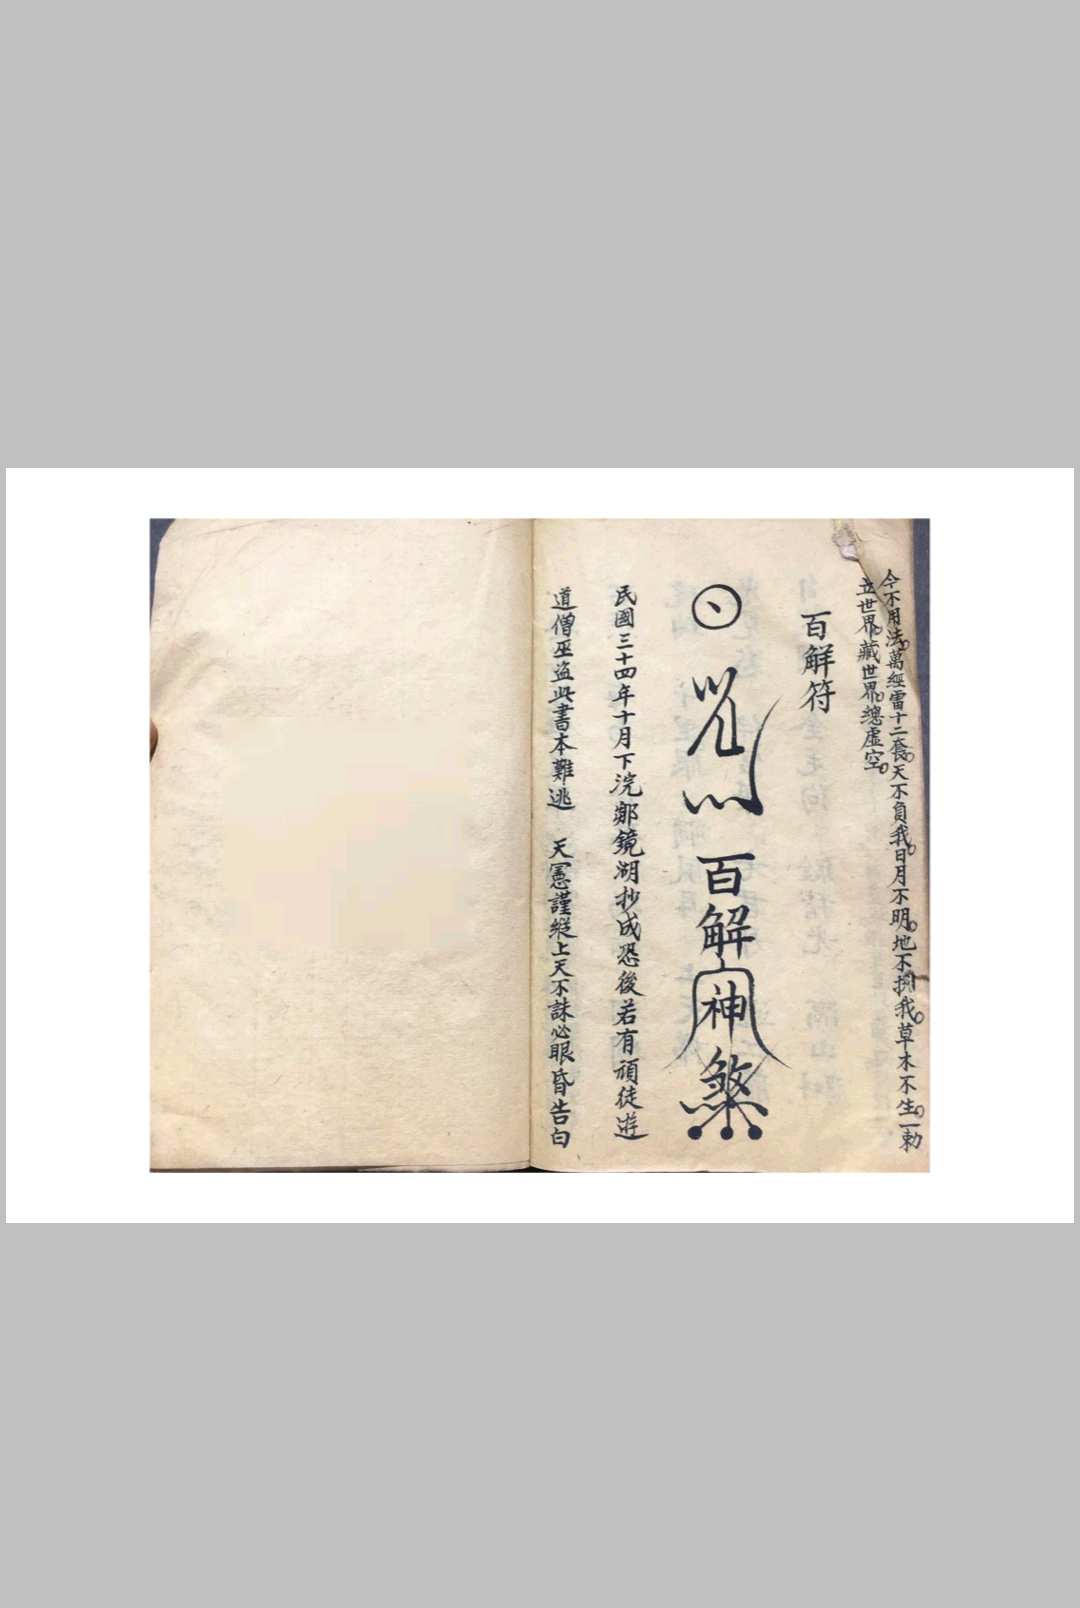 今不用法萬經雷十二套天不負我日月不明地不擁我草木不生一勅
立世界藏世界總虛空
百解符
百解神煞
民國三十四年十月下浣鄒鏡湖抄成恐後若有頑徒遊
道僧巫盜此書本難逃 天憲謹縱上天不誅必眼昏告白